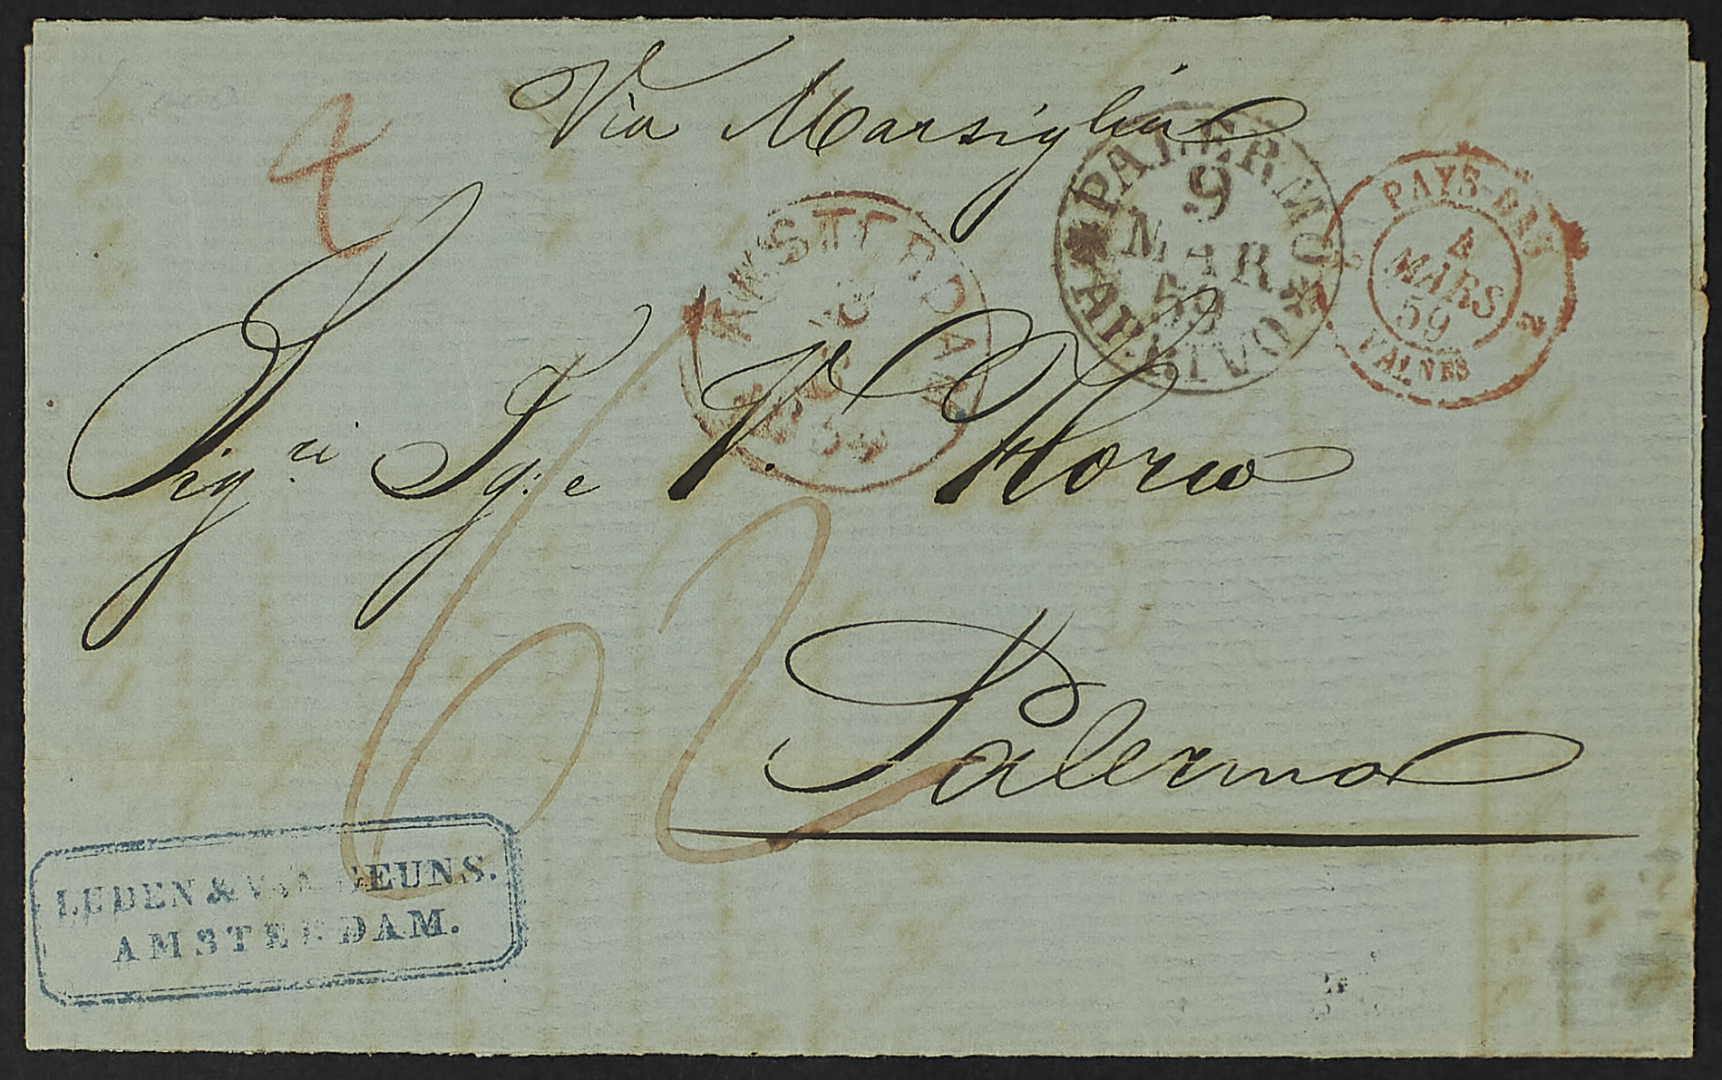 Via Marsiglia
4
PALERMO
9
MAR
59
ARRIVO
PAYS-BAS
4
MARS
59
VALNES
2
AMSTERDAM
Sig.ri I. e V. Florio
62
Palermo
LEDEN & VAN GEUNS.
AMSTERDAM.